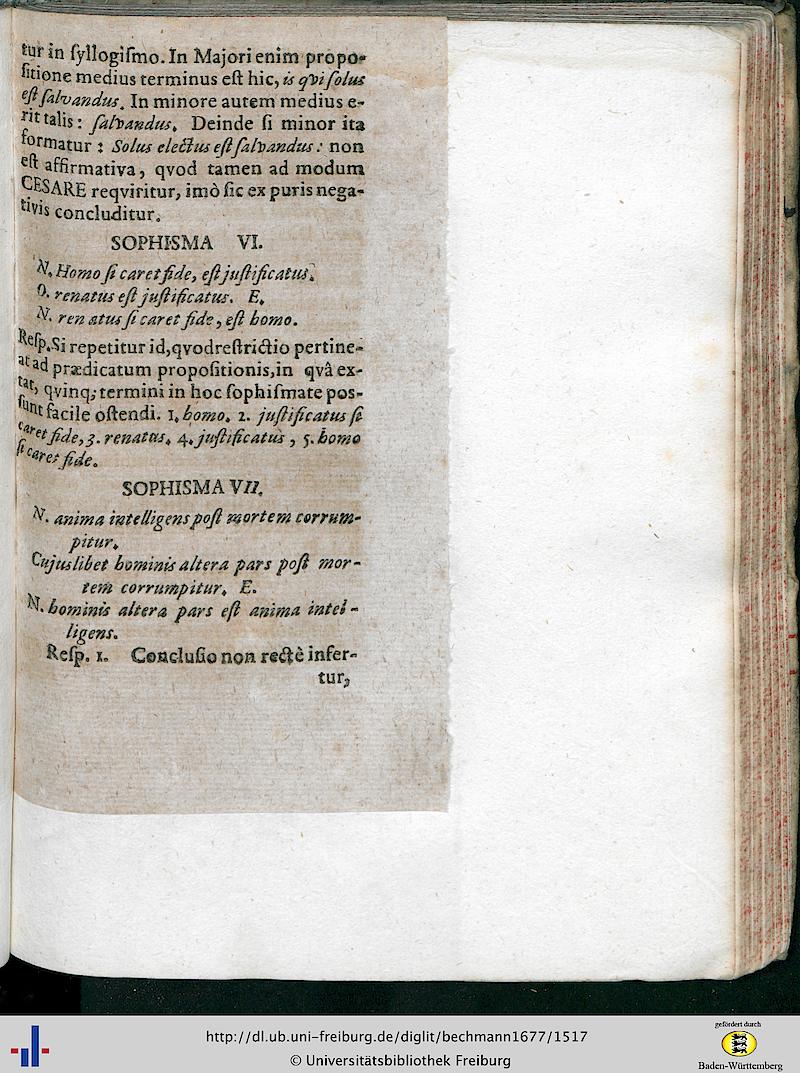 tur in ſyllogiſmo. In Majori enim propo-
ſitione medius terminus eſt hic, is qvi ſolus
eſt ſalvandus. In minore autem medius e-
rit talis: ſalvandus. Deinde ſi minor ita
formatur: Solus electus eſt ſalvandus: non
eſt affirmativa, qvod tamen ad modum
CESARE reqviritur, imò ſic ex puris nega-
tivis concluditur.
SOPHISMA VI.
N. Homo ſi caret fide, eſt juſtificatus.
O. renatus eſt juſtificatus. E.
N. renatus ſi caret fide, eſt homo.
Reſp. Si repetitur id, qvod reſtrictio pertine-
at ad prædicatum propoſitionis, in qvâ ex-
tat, qvinq; termini in hoc ſophiſmate poſ-
ſunt facile oſtendi. 1. homo. 2. juſtificatus ſi
caret fide, 3. renatus. 4. juſtificatus, 5. homo
ſi caret fide.
SOPHISMA VII.
N. anima intelligens poſt mortem corrum-
pitur.
Cujuslibet hominis altera pars poſt mor-
tem corrumpitur. E.
N. hominis altera pars eſt anima intel-
ligens.
Reſp. 1. Concluſio non rectè infer-
tur,
http://dl.ub.uni-freiburg.de/diglit/bechmann1677/1517
© Universitätsbibliothek Freiburg
gefördert durch
Baden-Württemberg